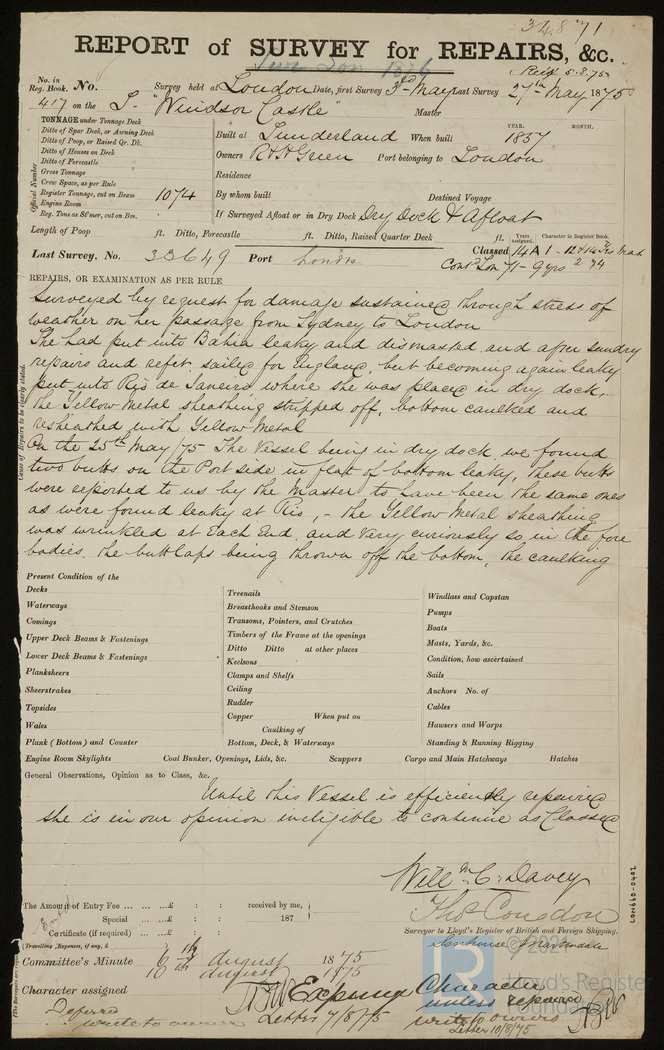 34871
REPORT of SURVEY for REPAIRS, &c.
Recd 5.8.75
No. in Reg. Book. No. Survey held at London Date, first Survey 3rd May Last Survey 27th May 1875
417 on the S. "Windsor Castle" Master
TONNAGE under Tonnage Deck
Ditto of Spar Deck, or Awning Deck
Ditto of Poop, or Raised Qr. Dk.
Ditto of Houses on Deck
Ditto of Forecastle
Gross Tonnage
Crew Space, as per Rule
Register Tonnage, cut on Beam 1074
Engine Room
Reg. Tons as St'mer, cut on Bm.
Official Number
YEAR. MONTH.
Built at Sunderland When built 1857
Owners R & H Green Port belonging to London
Residence
By whom built Destined Voyage
If Surveyed Afloat or in Dry Dock Dry Dock & Afloat
Length of Poop ft. Ditto, Forecastle ft. Ditto, Raised Quarter Deck ft.
Years assigned. Character in Register Book.
Last Survey, No. 33649 Port London Classed 14 A 1 - 12
Contd Lon 71 - 9 yrs 2 74
REPAIRS, OR EXAMINATION AS PER RULE
Cause of Repairs to be clearly stated.
Surveyed by request for damage sustained through stress of
weather on her passage from Sydney to London
She had put into Bahia leaky and dismasted and after sundry
repairs and refit, sailed for England, but becoming again leaky
put into Rio de Janeiro where she was placed in dry dock,
the Yellow Metal sheathing stripped off, bottom caulked and
resheathed with Yellow Metal
On the 25th May/75 The Vessel being in dry dock we found
two butts on the Port side in flat of bottom leaky, these butts
were reported to us by the Master to have been the same ones
as were found leaky at Rio, - the Yellow Metal sheathing
was wrinkled at Each End, and very curiously so in the fore
bodies, the butt laps being thrown off the bottom, the caulking
Present Condition of the
Decks
Waterways
Comings
Upper Deck Beams & Fastenings
Lower Deck Beams & Fastenings
Planksheers
Sheerstrakes
Topsides
Wales
Plank (Bottom) and Counter
Treenails
Breasthooks and Stemson
Transoms, Pointers, and Crutches
Timbers of the Frame at the openings
Ditto Ditto at other places
Keelsons
Clamps and Shelfs
Ceiling
Rudder
Copper When put on
Caulking of
Bottom, Deck, & Waterways
Windlass and Capstan
Pumps
Boats
Masts, Yards, &c.
Condition, how ascertained
Sails
Anchors No. of
Cables
Hawsers and Warps
Standing & Running Rigging
Engine Room Skylights Coal Bunker, Openings, Lids, &c. Scuppers Cargo and Main Hatchways Hatches
General Observations, Opinion as to Class, &c.
Until this Vessel is efficiently repaired
she is in our opinion ineligible to continue as Classed
Willm C. Davey
Thos Congdon
Surveyor to Lloyd's Register of British and Foreign Shipping.
The Amount of Entry Fee £ : : received by me,
Special £ : : 187
Certificate (if required) £ : :
(Travelling Expenses, if any, £
Committee's Minute 6th August 1875
10th August 1875
Character assigned
Deferred
write to owner
Letter 7/8/75
Expunge Character
unless repaired
write to owners
Letter 10/8/75
LON660-0402
© 2021
Lloyd's Register
Foundation